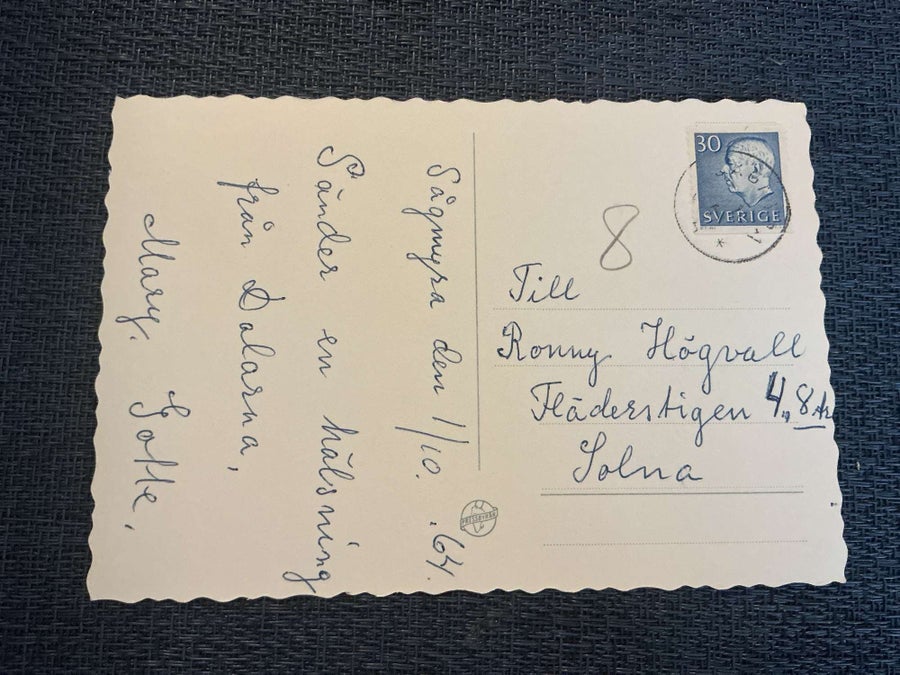 Sågmyra den 1/10. .64.
Sänder en hälsning
från Dalarna,
Mary. Gotte.
30
SVERIGE
8
Till
Ronny Högvall
Fläderstigen 4., 8 tr
Solna
PRESSBYRÅN